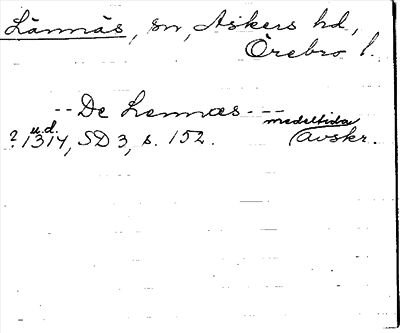 Lännäs, sn, Askers hd,
Örebro l.
-- De Lennæs ---
medeltida
? u.d. 1314, SD 3, s. 152. (avskr.